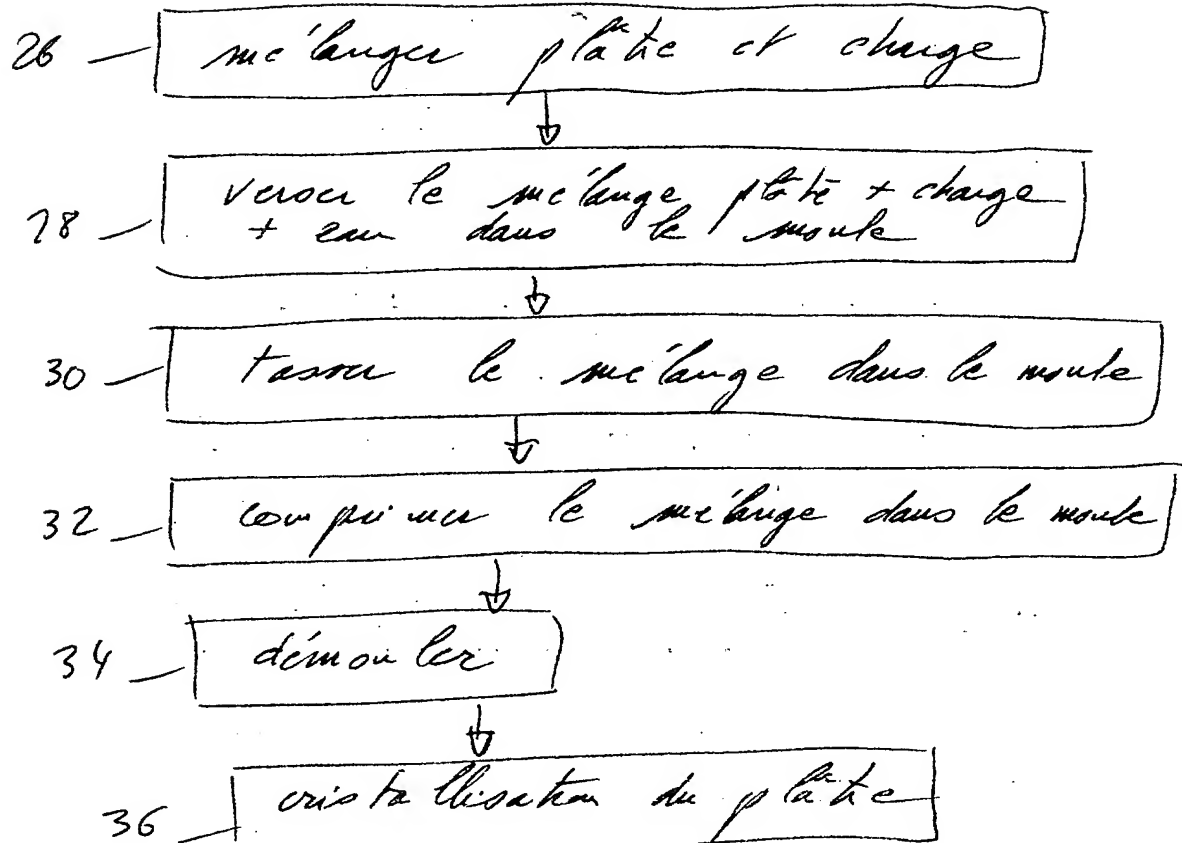 26 mélanger plâtre et charge
28 verser le mélange plâtre + charge
+ eau dans le moule
30 tasser le mélange dans le moule
32 comprimer le mélange dans le moule
34 démouler
36 cristallisation du plâtre